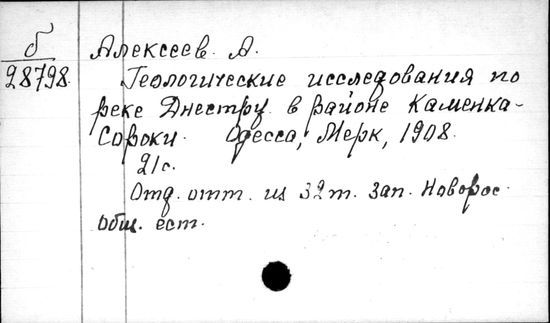 б
28798.
Алексеев. А.
Геологические исследования по
реке Днестру в районе Каменка-
Сороки. Одесса, Мерк, 1908.
21с.
Отд. отт. из 32т. Зап. Новорос.
общ. ест.